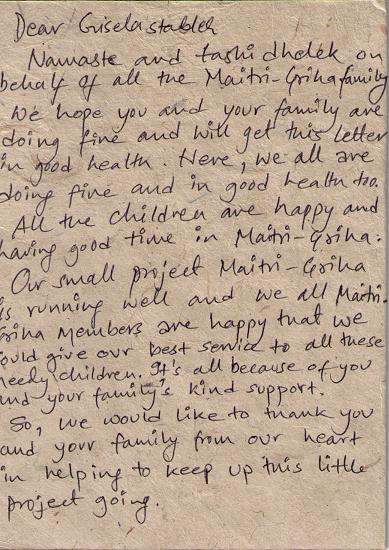 Dear Gisela stableh
Namaste and tashi dhelek on
behalf of all the Maitri-Griha family
We hope you and your family are
doing fine and will get this letter
in good health. Here, we all are
doing fine and in good health too.
All the children are happy and
having good time in Maitri-Griha.
Our small project Maitri-Griha
is running well and we all Maitri-
Griha Members are happy that we
could give our best service to all these
needy children. It's all because of you
and your family's kind support.
So, we would like to thank you
and your family from our heart
in helping to keep up this little
project going.